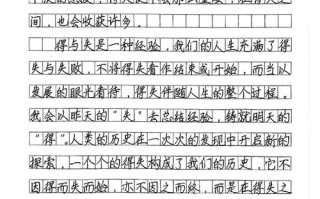 间，也会收获许多。
得与失是一种经验，我们的人生充满了得
失与失败，不将得失看作结束或开始，而当以
发展的眼光看待，得失伴随人生的整个过程。
我会以昨天的“失”去总结经验，铸就明天的
“得”。人类的历史在一次次的发现中开启新的
探索，一个个的得失构成了我们的历史，它不
因得而失而始，亦不因之而终，而是在得失之